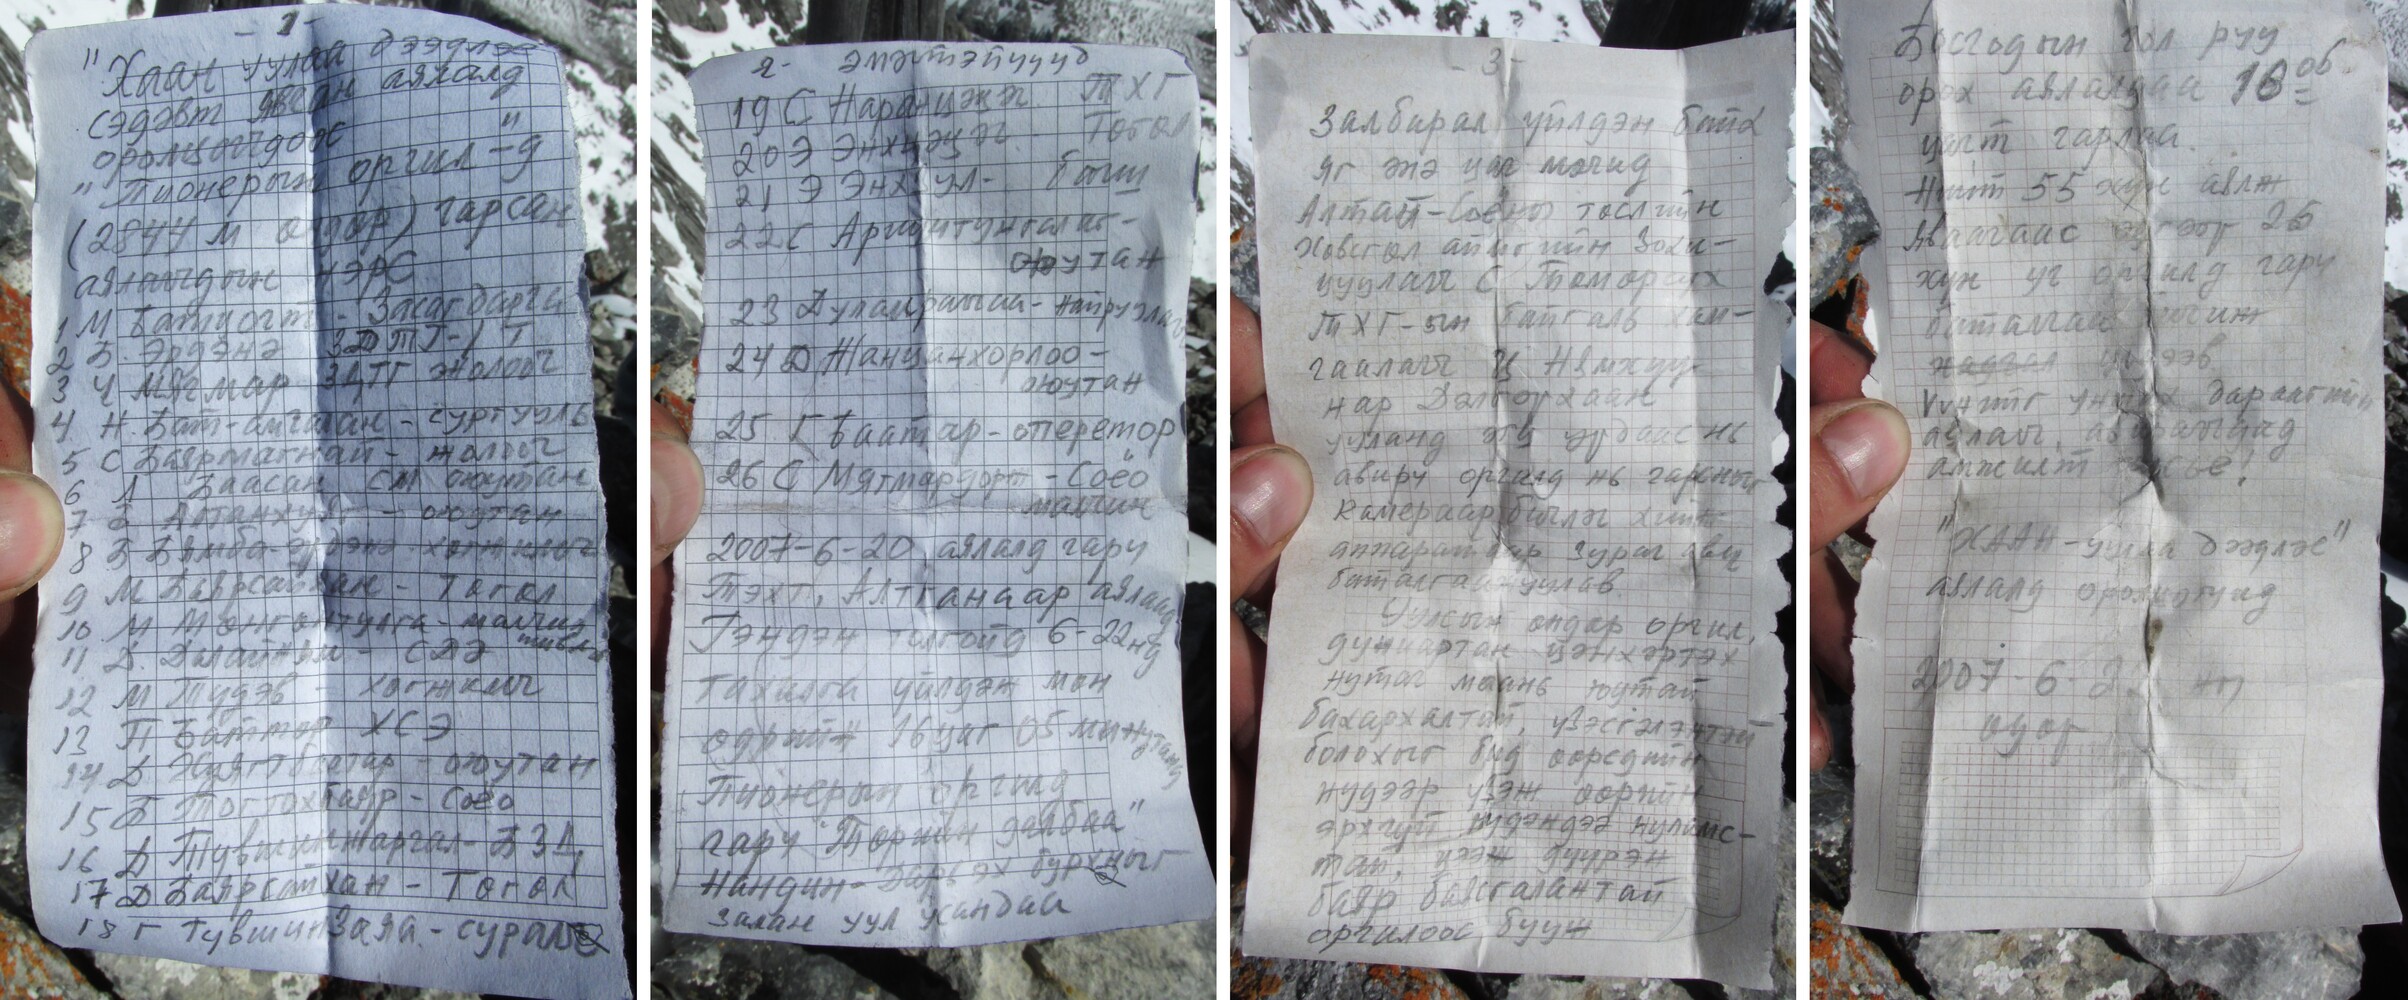 - 1 -
"Хаан уулаа дээдлэе"
сэдэвт явган аялалд
оролцогчдоос
"Пионерын оргил"-д
(2844 м өндөр) гарсан
аялагчдын нэрс
1 М Батцогт - Засаг дарга
2 Б. Эрдэнэ ЗДТГ-Т
3 Ч Мягмар ЗДТГ жолооч
4. Н. Бат-амгалан - сургууль
5 С Баярмагнай - жолооч
6 Л Баасан СМ оюутан
7 Б Алтанхуяг - оюутан
8 Б Бямба-эрдэнэ хөгжимчин
9 М Баярсайхан - Тогоо
10 М Мөнгөнтулга - малчин
11 Д. Далайням - СДЭ
12 М Түдэв - хөгжимч
13 П Баттөр ХСЭ
14 Д Хуягтбаатар - оюутан
15 Б Тогтохбаяр - Соёо
16 Д Түвшинжаргал - БЗД
17 Д Баярсайхан - Тогоо
18 Г Түвшинзаяа - сурагч
2- эмэгтэйчүүд
19 С Наранцэцэг ТХГ
20 Э Энхцэцэг Тогоо
21 Э Энхзул - багш
22 С Ариунтунгалаг -
оюутан
23 Дуламрагчаа - найруулагч
24 Д Жанцанхорлоо -
оюутан
25 Г Баатар - оператор
26 С Мягмардорж - Соёо
машин
2007-6-20 аялалд гарч
Тэхт, Алтганаар аялаад
Гэндэн толгойд 6-22нд
тахилга үйлдэн мөн
өдрийн 16 цаг 05 минутанд
Пионерын оргилд
гарч "Төрийн далбаа"
Нандин-Дарь эх бурхныг
залан уул усандаа
- 3 -
Залбирал үйлдэн байх
яг энэ цаг мөчид
Алтай-Соёны төслийн
Хөвсгөл аймгийн Зохи-
цуулагч С Төмөрсүх
ТХГ-ын байгаль хам-
гаалагч Ц Нямхүү-
нар Дэлгэрхаан
ууланд өгч урдаас нь
авирч оргилд нь гарсныг
камераар бичлэг хийж
аппаратаар зураг авч
баталгаажуулав.
Уулсын өндөр оргил,
дүнчиартан цэнхэртэх
нутаг маань юутай
бахархалтай, үзэсгэлэнтэй
болохыг бид өөрсдийн
нүдээр үзэж өөрийн
эрхгүй нүдэндээ нулимс-
тай, цээж дүүрэн
баяр баясгалантай
оргилоос бууж
Богодын гол руу
орох аялалдаа 16 06
цагт гарлаа.
Нийт 55 хүн аялж
яваагаас эдгээр 26
хүн уг оргилд гарч
баталгаа бичиж
үлдээв.
Үүнийг унших дараагийн
аялагч, авирагчдад
амжилт хүсье!
"ХААН-уулаа дээдлэе"
аялалд оролцогчид
2007-6-22 ны
өдөр